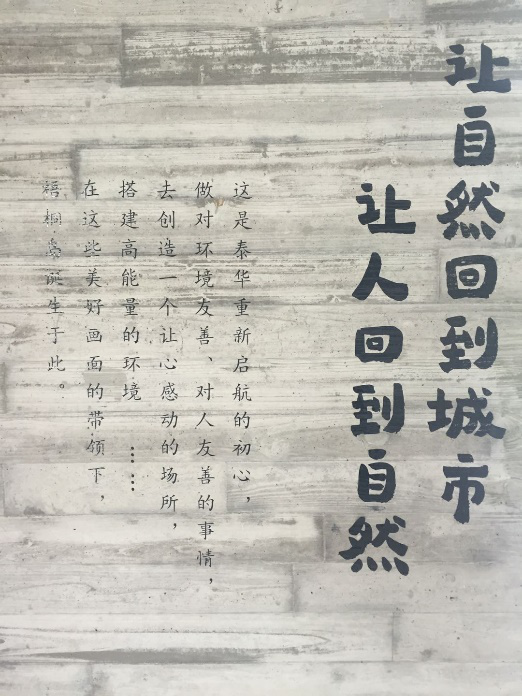 让自然回到城市
让人回到自然
这是泰华重新启航的初心，
做对环境友善、对人友善的事情，
去创造一个让心感动的场所，
搭建高能量的环境……
在这些美好画面的带领下，
梧桐岛诞生于此。